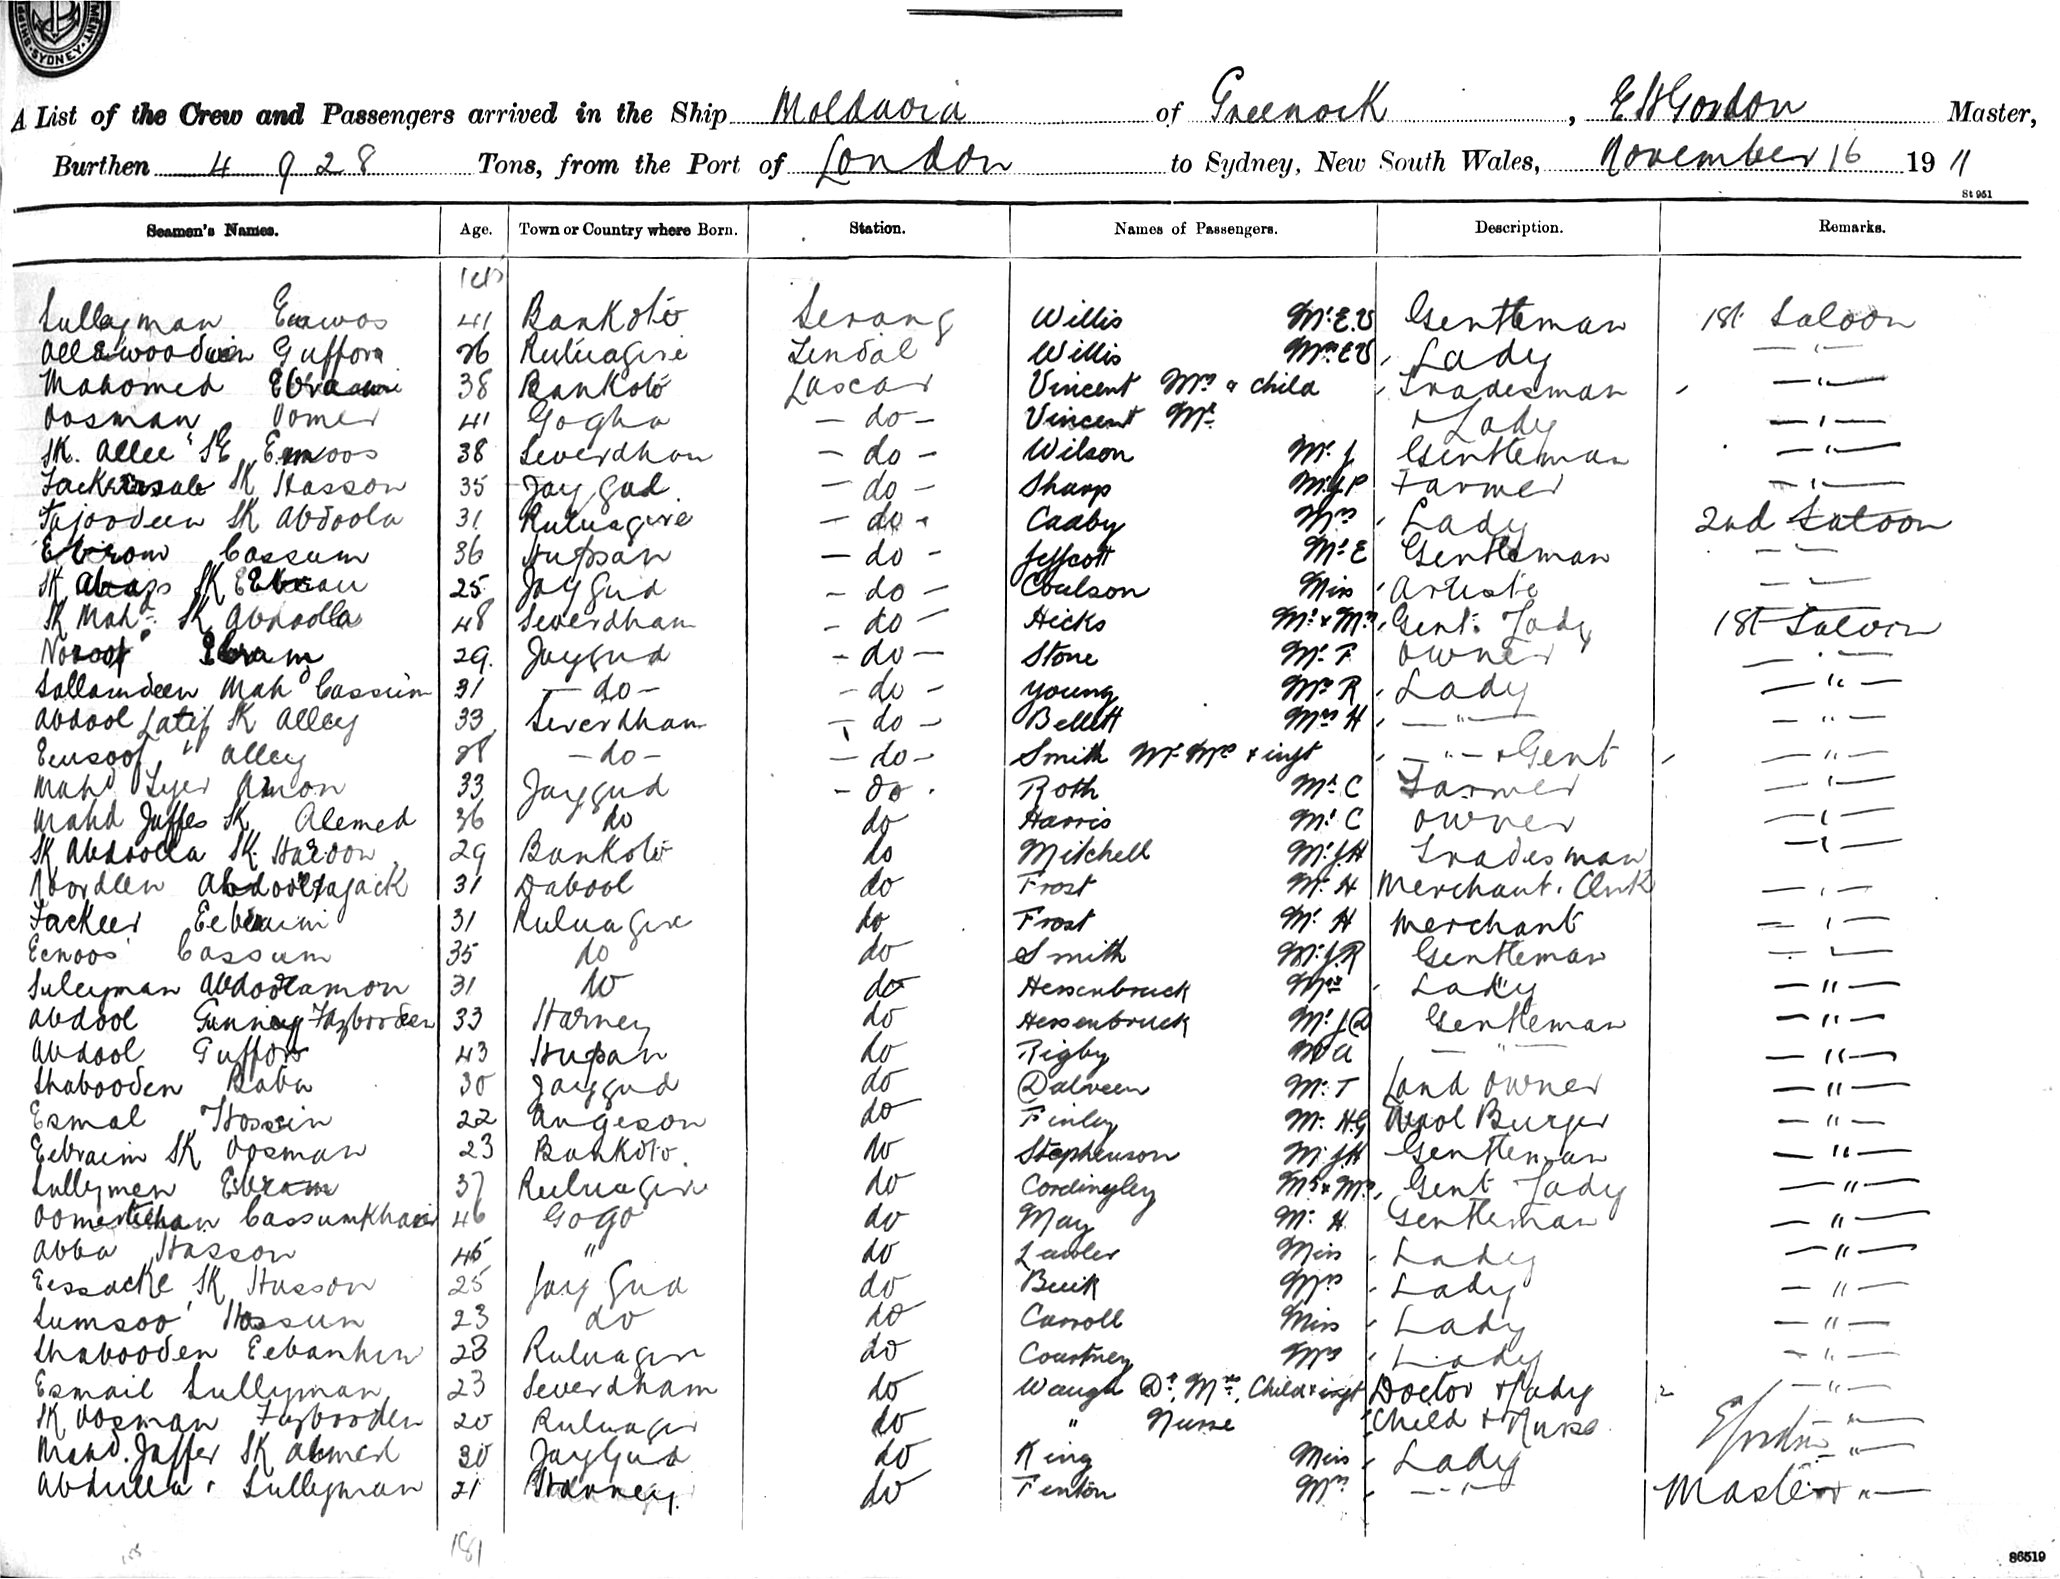 SYDNEY
A List of the Crew and Passengers arrived in the Ship Moldavia of Greenock, E H Gordon Master,
Burthen 4928 Tons, from the Port of London to Sydney, New South Wales, November 16 1911
St 951
Seamen's Names. Age. Town or Country where Born. Station. Names of Passengers. Description. Remarks.
Sulleyman 41 Bankote Serang Willis Mr. E.V Gentleman 1st Saloon
Guffora 26 Rutnagire Tindal Willis Mrs E V Lady — " —
Mahomed 38 Bankote Lascar Vincent Mrs & child Tradesman — " —
Oosman Oomer 41 Gogha — do — Vincent Mr. & Lady — " —
SK. Allee SK Eenoos 38 Severdhan — do — Wilson Mr. J Gentleman — " —
SK Hasson 35 Jaygud — do — Sharp Mr J P Farmer — " —
Tajordeen SK Abdoola 31 Rutnagire — do — Cadby Mrs Lady 2nd Saloon
Ebrom Cassum 36 Hupsan — do — Jeffcott Mr. E Gentleman — " —
SK SK 25 Jaygud — do — Coulson Miss Artiste — " —
SK Mahd. SK Abdoolla 48 Severdham — do — Hicks Mr. & Mrs Gent. Lady 1st Saloon
29. Jaygud — do — Stone Mr. F Owner — " —
Sallamdeen Mahd Cassum 31 — do — — do — Young Mrs R Lady — " —
Abdool Latif SK Alley 33 Severdham — do — Bellett Mrs H — " — — " —
Eusoof " Alley 28 — do — — do — Smith Mr. Mrs & inft — " — & Gent — " —
Mahd 33 Jaygud — do — Roth Mr. C Farmer — " —
Mahd Juffer SK Alemed 36 do do Harris Mr. C Owner — " —
SK Abdoolla SK Haroon 29 Bankote do Mitchell Mr. J.H Tradesman — " —
Noordeen 31 Dabool do Frost Mr. H Merchant. Clerk — " —
Fackeer Eebraim 31 Rutnagire do Frost Mr. H Merchant — " —
Eenoos Cassum 35 do do Smith Mr. J.R Gentleman — " —
Suleyman Abdoolamon 31 do do Hessenbruck Mrs Lady — " —
Abdool Fazbooden 33 Harney do Hessenbruck Mr. J D Gentleman — " —
Abdool Guffor 43 Hupan do Rigby Mr A — " — — " —
Shabooden Baba 30 Jaygud do Dalveen Mr. T Land Owner — " —
Esmal Hossein 22 Angeson do Finley Mr. H.G Wool Buyer — " —
Eebraim SK Oosman 23 Bankote do Stephenson Mr. J.H Gentleman — " —
Sulleymen Ebram 37 Rutnagire do Cordingley Mr & Mrs Gent Lady — " —
Cassumkhan 46 Gogo do May Mr. H. Gentleman — " —
Abba Hasson 45 " do Lawler Miss Lady — " —
Eessacke SK Husson 25 Jaygud do Buik Mrs Lady — " —
Sumsoo Hassun 23 do do Carroll Miss Lady — " —
Shabooden 23 Rutnagire do Courtney Mrs Lady — " —
Esmail Sulleyman 23 Severdham do Waugh Dr. Mrs. Child & inft Doctor & Lady — " —
SK Oosman Fazbooden 20 Rutnagir do " Nurse Child & Nurse — " —
Mahd. Jaffer SK Ahmed 30 Jaygud do King Miss Lady — " —
Abdulla Sulleyman 21 Harney. do Fenton Mrs — " — — " —
E Gordon
Master
181
86519